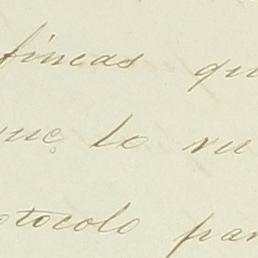 fincas qu
que lo ru
otocolo par